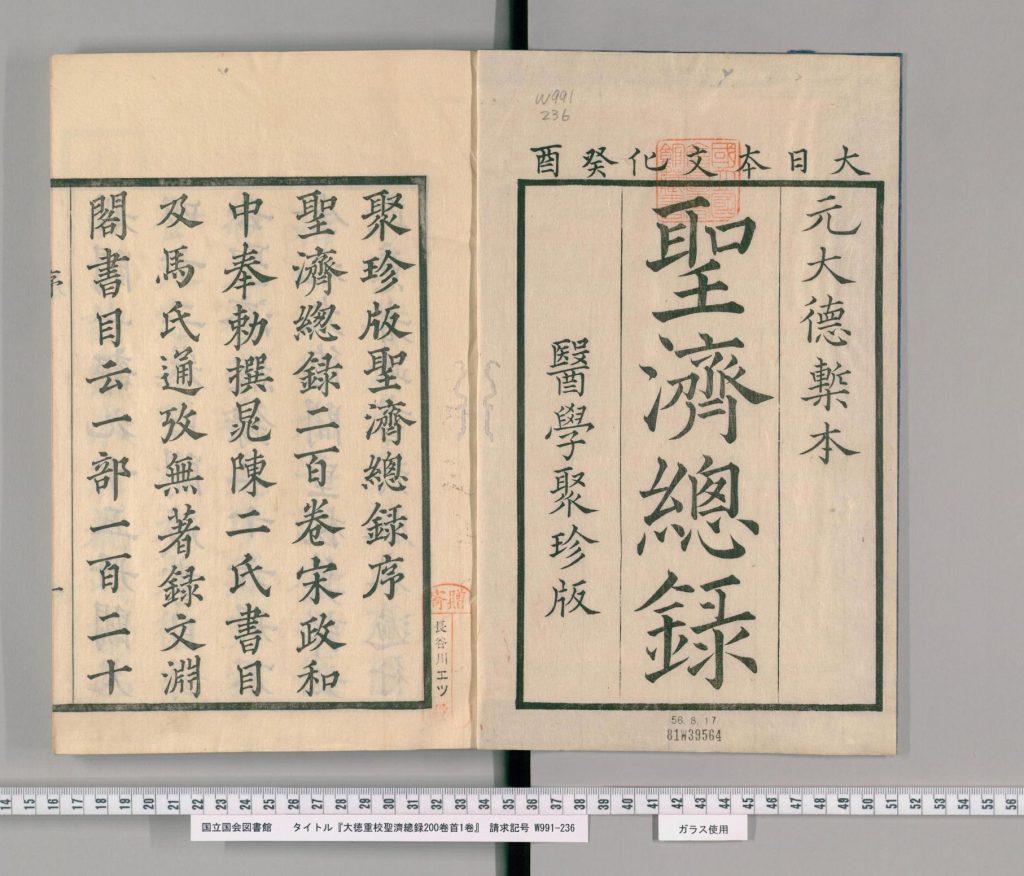 W991
236
大日本文化癸酉
元大德槧本
聖濟總録
醫學聚珍版
56.8.17
81W39564
聚珍版聖濟總録序
聖濟總録二百卷宋政和
中奉勅撰晁陳二氏書目
及馬氏通攷無著録文淵
閣書目云一部一百二十
序
一
寄贈
長谷川エツ
14 15 16 17 18 19 20 21 22 23 24 25 26 27 28 29 30 31 32 33 34 35 36 37 38 39 40 41 42 43 44 45 46 47 48 49 50 51 52 53 54 55 56
国立国会図書館 タイトル『大徳重校聖済總録200巻首1巻』 請求記号 W991-236
ガラス使用